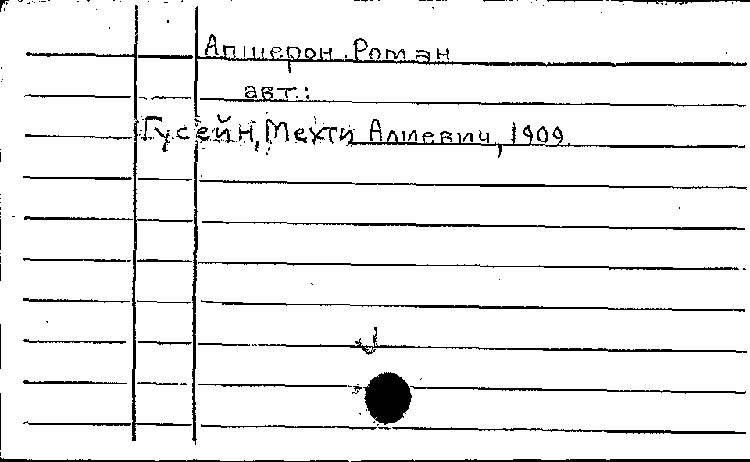 Апшерон. Роман
авт.:
Гусейн, Мехти Алиевич, 1909.